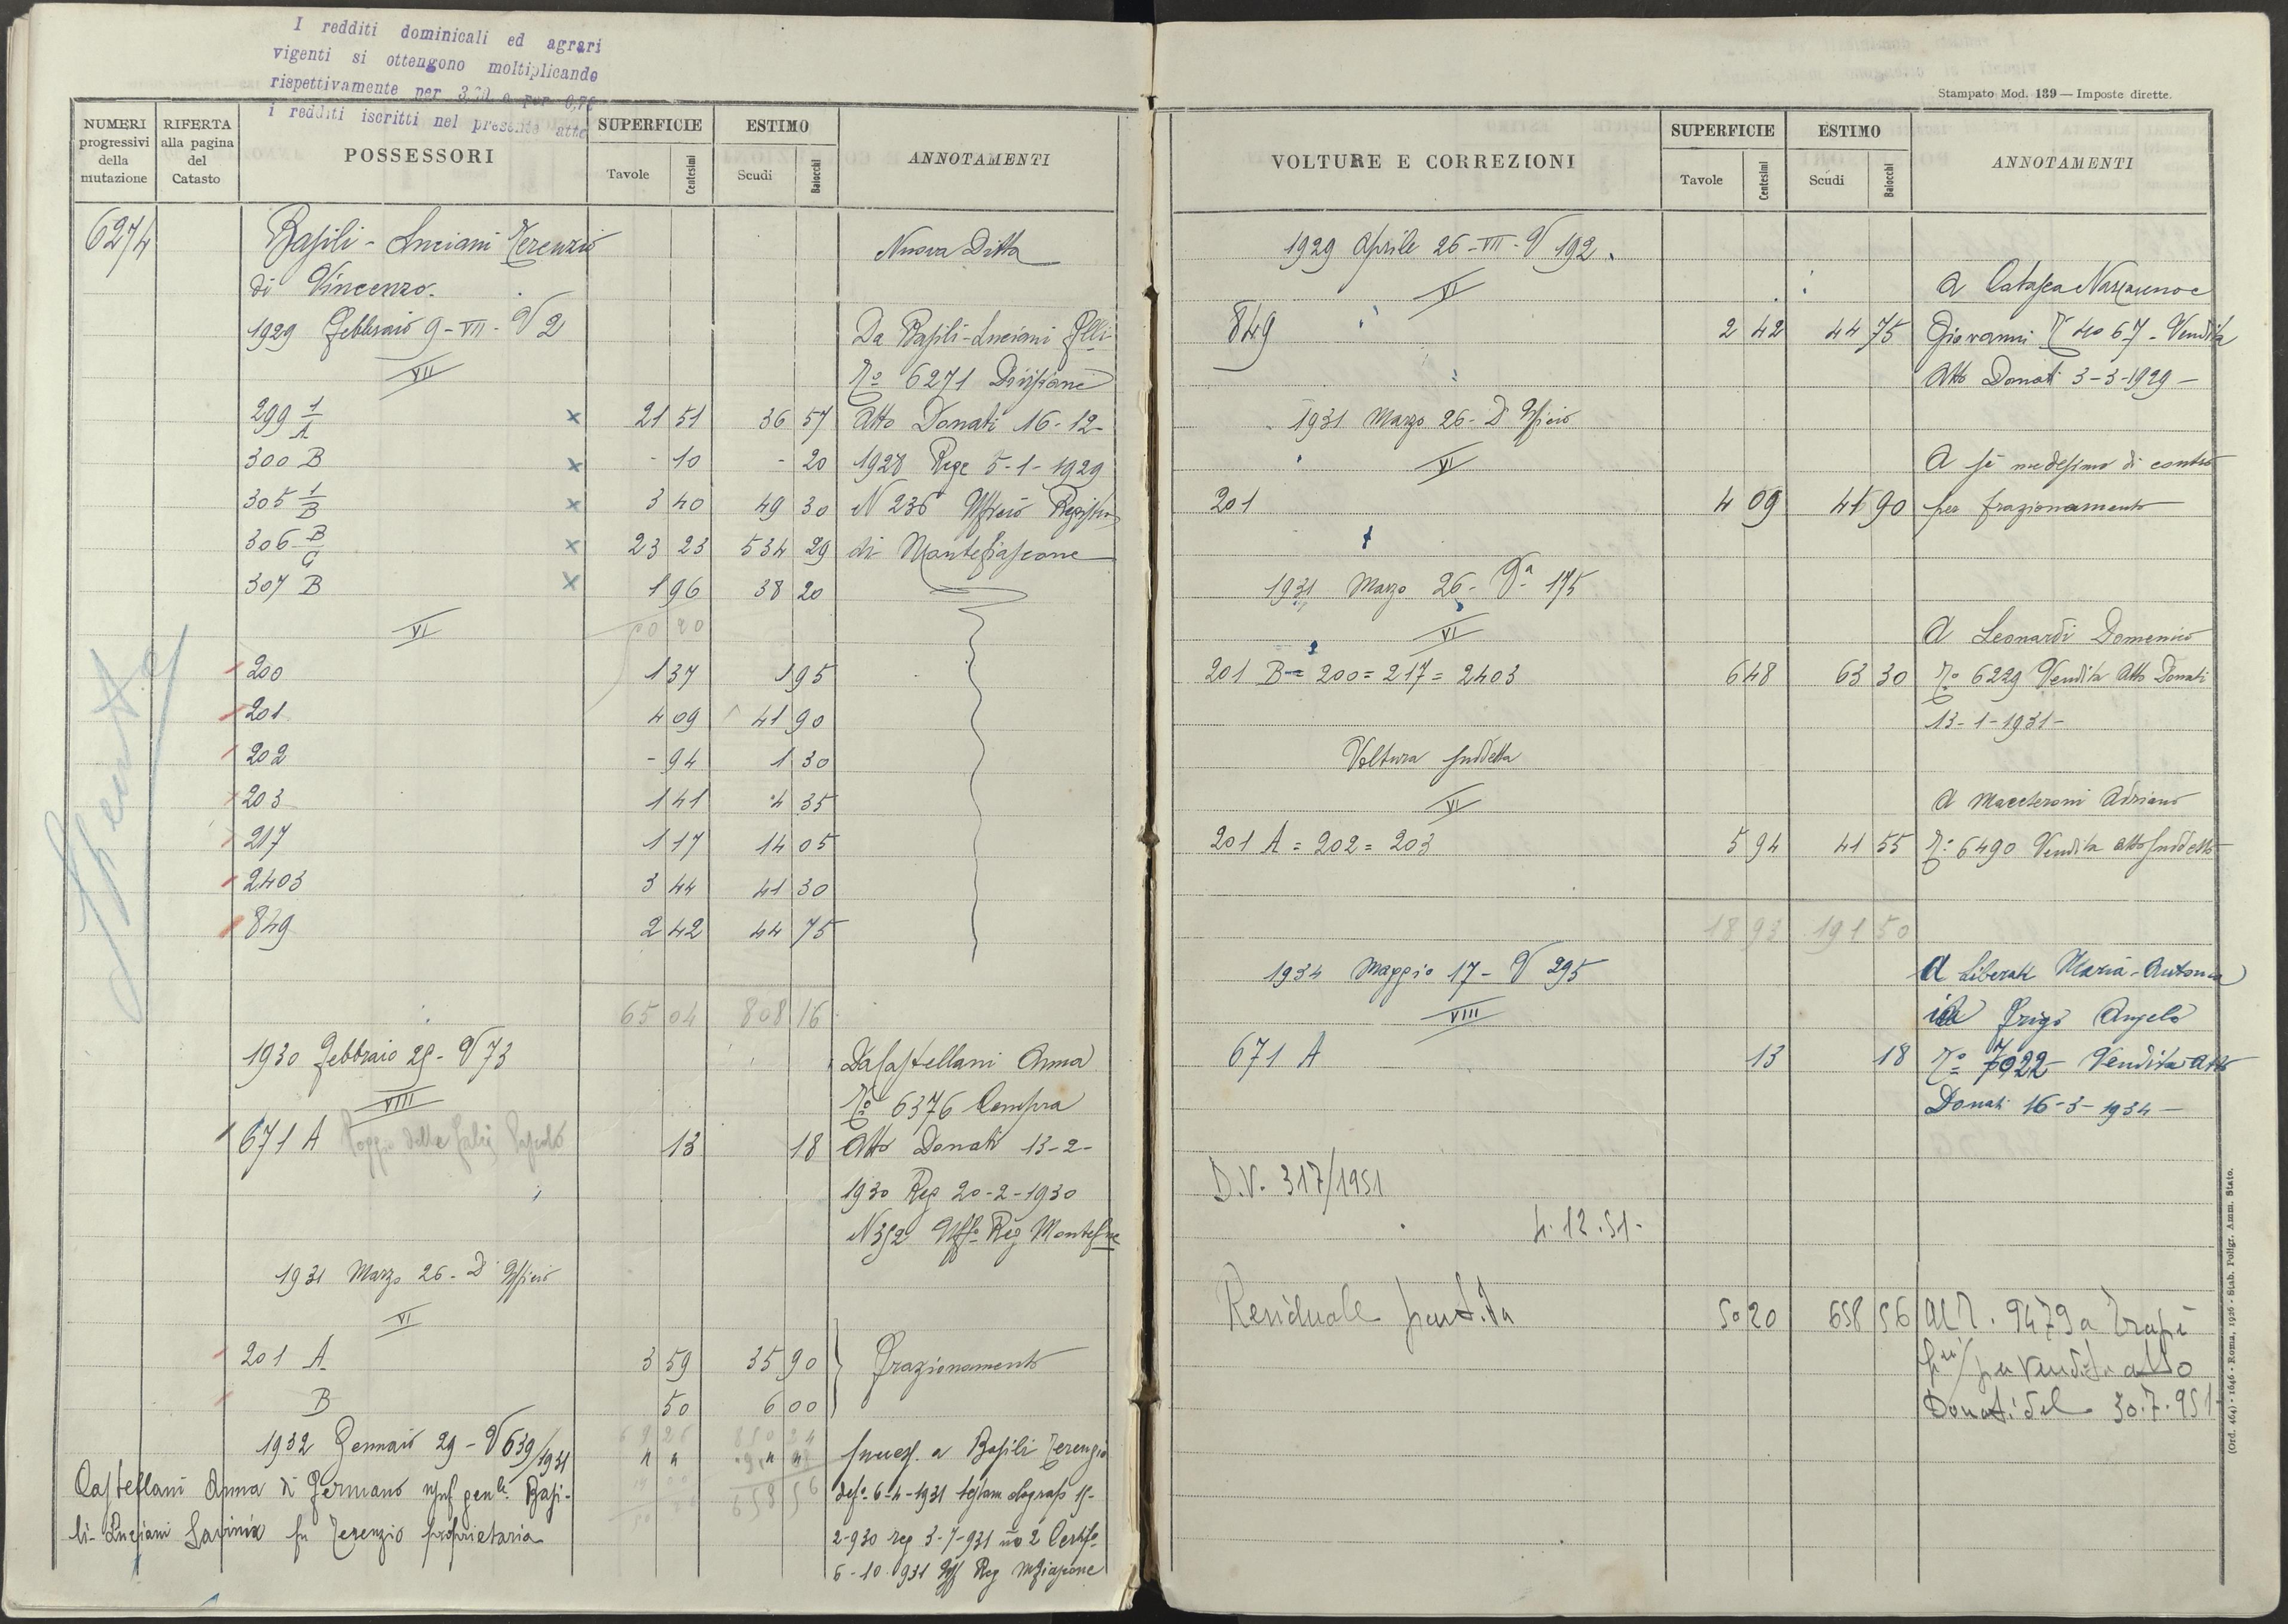 I redditi dominicali ed agrari
vigenti si ottengono moltiplicando
rispettivamente per
i redditi iscritti nel presente atto
NUMERI progressivi della mutazione
RIFERTA alla pagina del Catasto
POSSESSORI
SUPERFICIE
Tavole Centesimi
ESTIMO
Scudi Baiocchi
ANNOTAMENTI
6274 Basili - Luciani Terenzio Nuova Ditta
di Vincenzo.
1929 Febbraio 9 - VII - V 2 Da Basili - Luciani Flli
VII No 6271 Divisione
299 1/A x 21 51 36 57 Atto Donati 16-12-
300 B x - 10 - 20 1928 Reg 5-1-1929
305 1/B x 3 40 49 30 N 236 Ufficio Registro
306 B/C x 23 23 534 29 di Montefiascone
307 B x 1 96 38 20
VI
200 1 37 1 95
201 4 09 41 90
202 - 94 1 30
203 1 41 4 35
217 1 17 14 05
2403 3 44 41 30
849 2 42 44 75
Spenta
65 04 808 16
1930 Febbraio 25 - V 73 Da Castellani Anna
VIII No 6376 Compra
671 A Poggio della 13 18 Atto Donati 13-2-
1930 Reg 20-2-1930
N 352 Uffo Reg Montefne
1931 Marzo 26 - D'Ufficio
VI
201 A 3 59 35 90 Frazionamento
B 50 6 00
69 26 850 24
1932 Gennaio 29 - V 639/1931 " " " " success. a Basili Terenzio
Castellani Anna di Germano usuf genle Basi-
def. 6-4-1931 testam olografo 15-
658 56
li - Luciani Lavinia fu Terenzio proprietaria
2-930 reg 3-7-931 no 2 Certifo
6-10-931 Uff Reg Mfiascone
Stampato Mod. 139 — Imposte dirette.
VOLTURE E CORREZIONI
SUPERFICIE
Tavole Centesimi
ESTIMO
Scudi Baiocchi
ANNOTAMENTI
1929 Aprile 26 - VII - V 192
VI A
849 2 42 44 75 Giovanni N 4067 - Vendita
Atto Donati 3-3-1929 -
1931 Marzo 26 - D'Ufficio
VI A se medesimo di contro
201 4 09 41 90 per frazionamento
1931 Marzo 26 - Va 175
VI A Leonardi Domenico
201 B = 200 = 217 = 2403 6 48 63 30 No 6229 Vendita Atto Donati
13-1-1931 -
Voltura suddetta
VI A Maccheroni Adriano
201 A = 202 = 203 5 94 41 55 No 6490 Vendita atto suddetto
18 93 191 50
1934 Maggio 17 - V 295 A Liberati Maria - Antonia
VIII in Frigo Angelo
671 A 13 18 No 7022 Vendita Atto
Donati 16-3-1934 -
D.V. 317/1951
4.12.51.
Residuale partita 50 20 658 56 Al N. 9479 a Trapè
per vendita atto
Donati del 30.7.951
(Ord. 464) - 1646 - Roma, 1926 - Stab. Poligr. Amm. Stato.